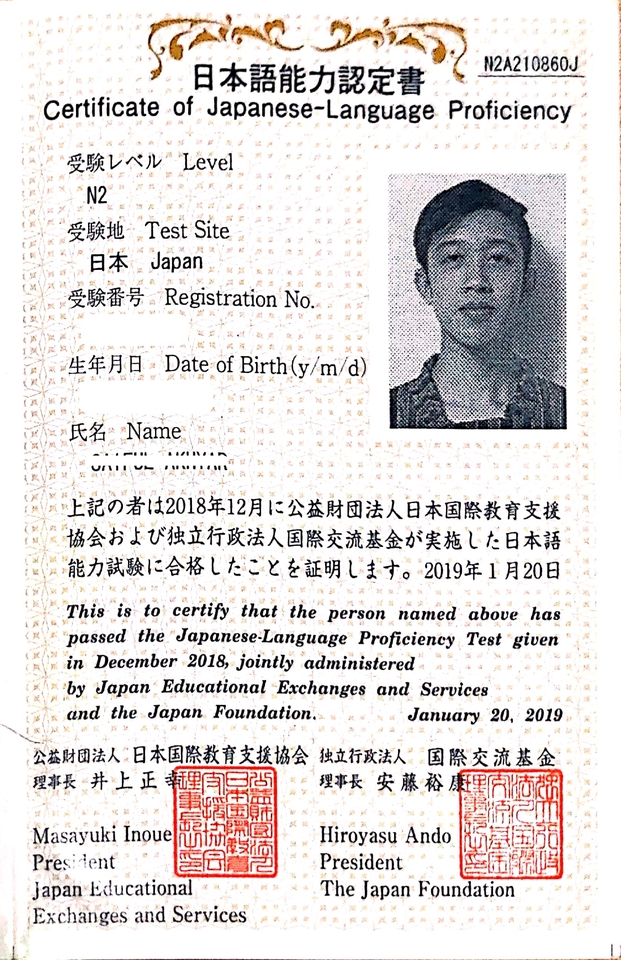 N2A210860J
日本語能力認定書
Certificate of Japanese-Language Proficiency
受験レベル Level
N2
受験地 Test Site
日本 Japan
受験番号 Registration No.
生年月日 Date of Birth(y/m/d)
氏名 Name
上記の者は2018年12月に公益財団法人日本国際教育支援
協会および独立行政法人国際交流基金が実施した日本語
能力試験に合格したことを証明します。2019年1月20日
This is to certify that the person named above has
passed the Japanese-Language Proficiency Test given
in December 2018, jointly administered
by Japan Educational Exchanges and Services
and the Japan Foundation. January 20, 2019
公益財団法人 日本国際教育支援協会
理事長 井上正幸
Masayuki Inoue
President
Japan Educational
Exchanges and Services
独立行政法人 国際交流基金
理事長 安藤裕康
Hiroyasu Ando
President
The Japan Foundation